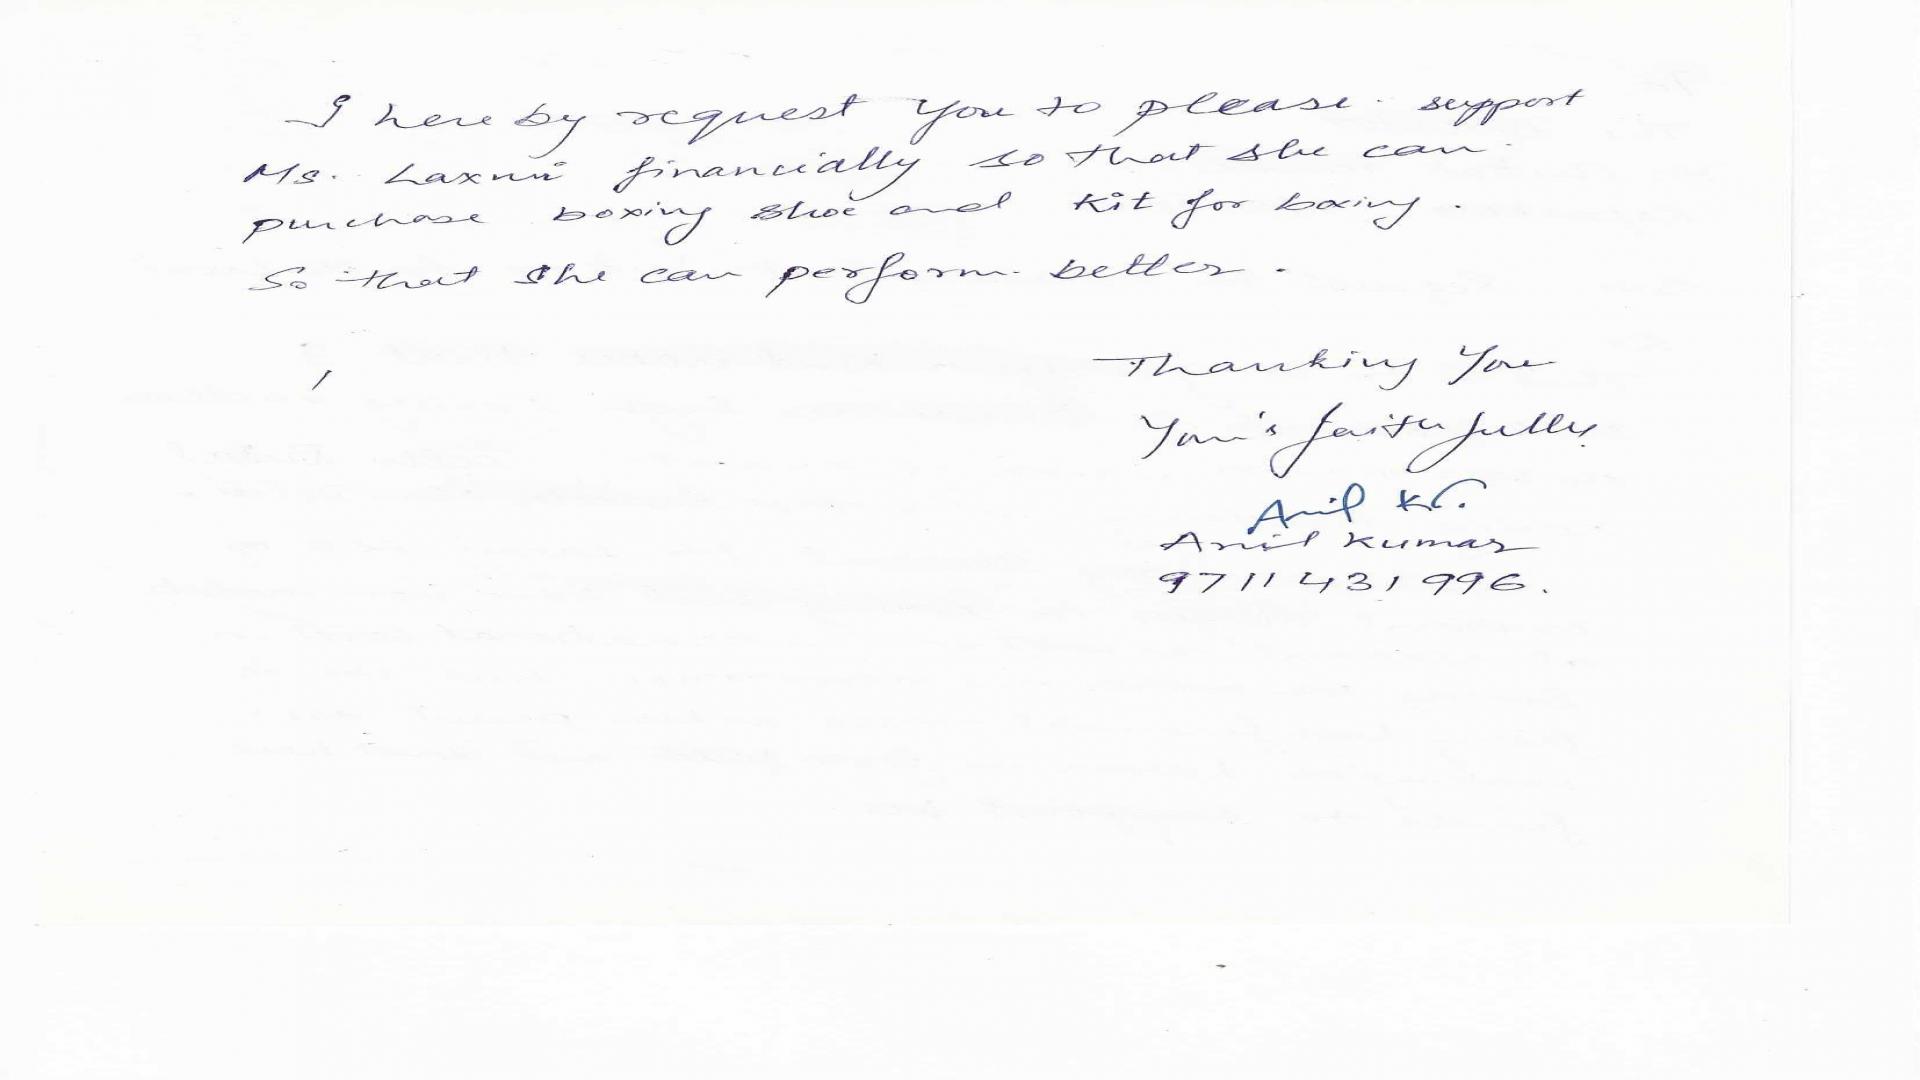 I hereby request you to please. support
Ms. Laxmi financially so that she can
purchase boxing shoe and kit for boxing.
So that she can perform. better.
Thanking You
Your's faithfully
Anil Kr.
Anil Kumar
9711431996.